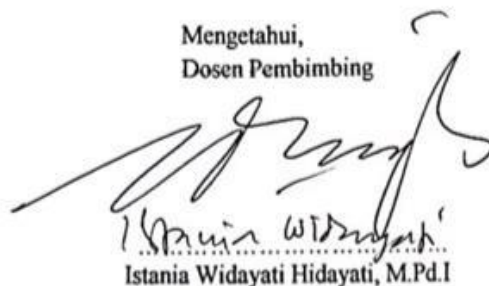 Mengetahui,
Dosen Pembimbing
Istania Widayati
Istania Widayati Hidayati, M.Pd.I